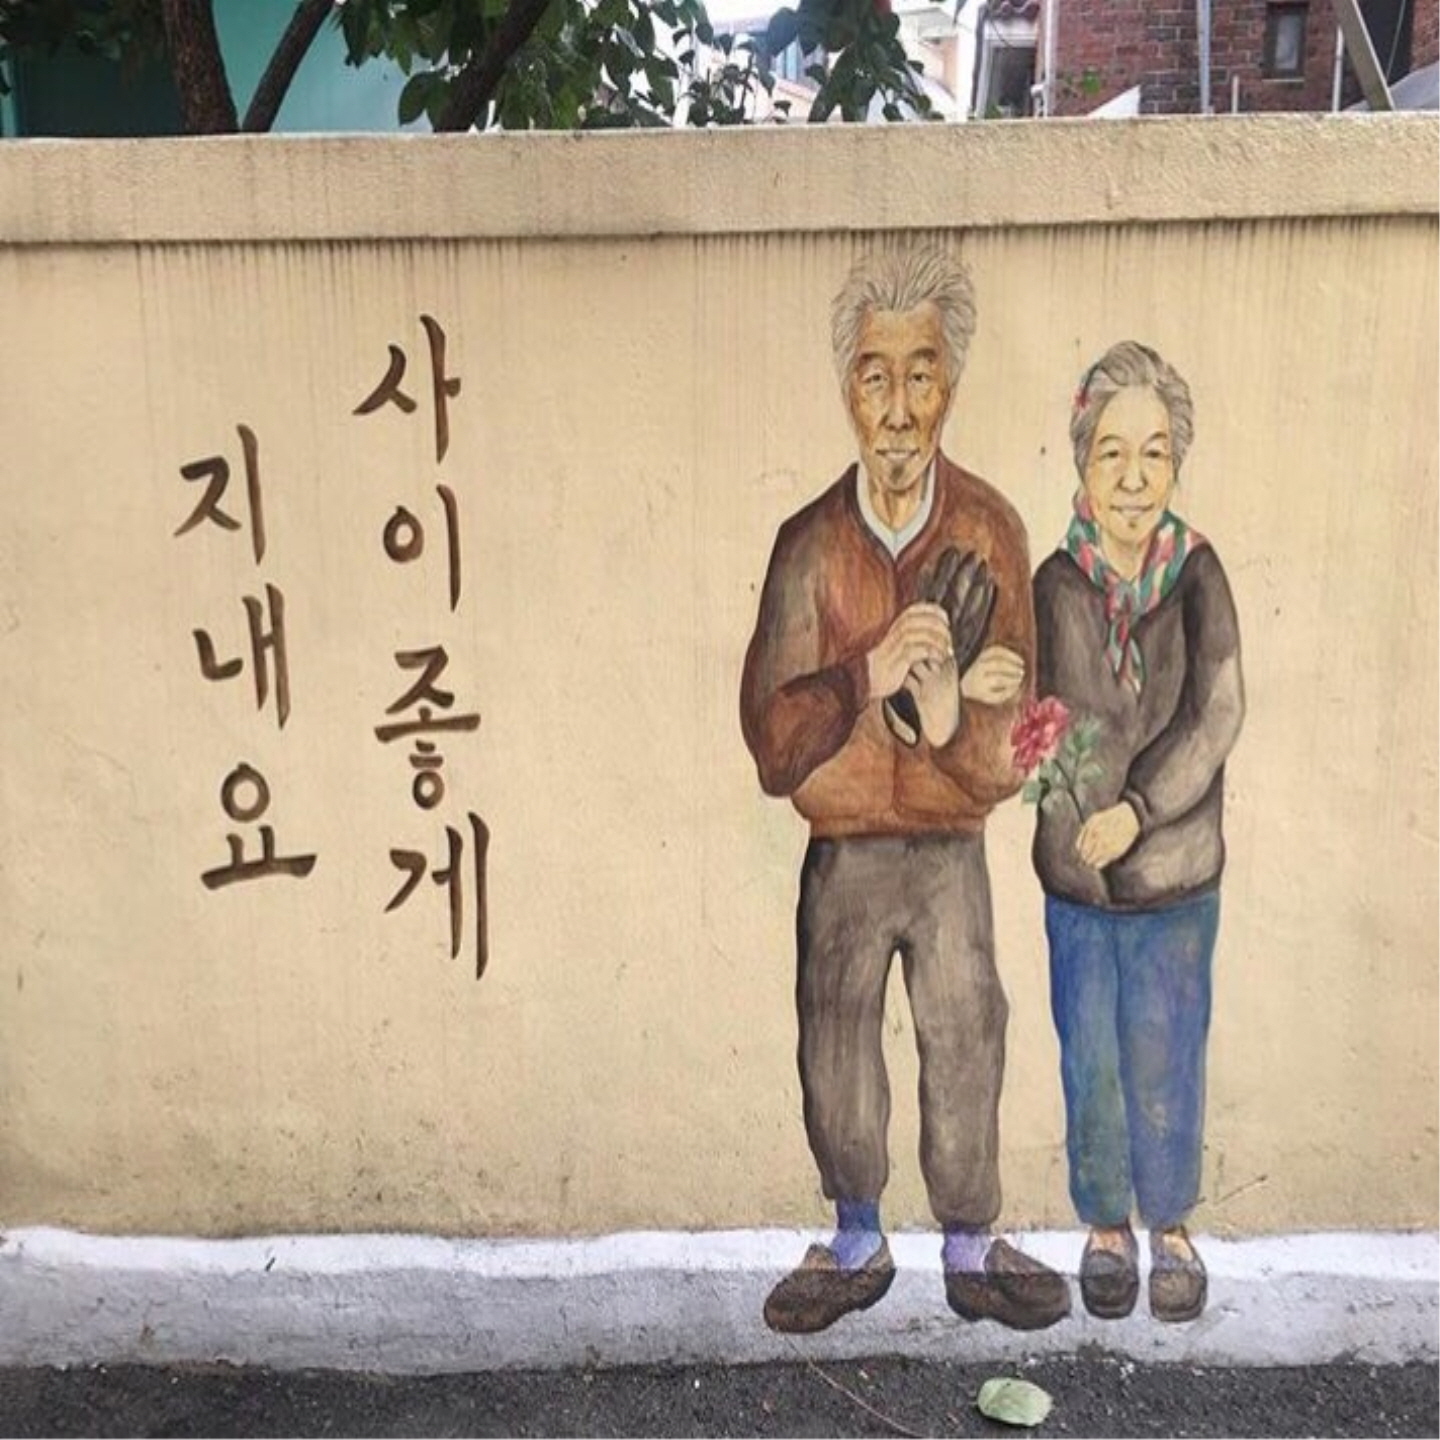 사이좋게
지내요